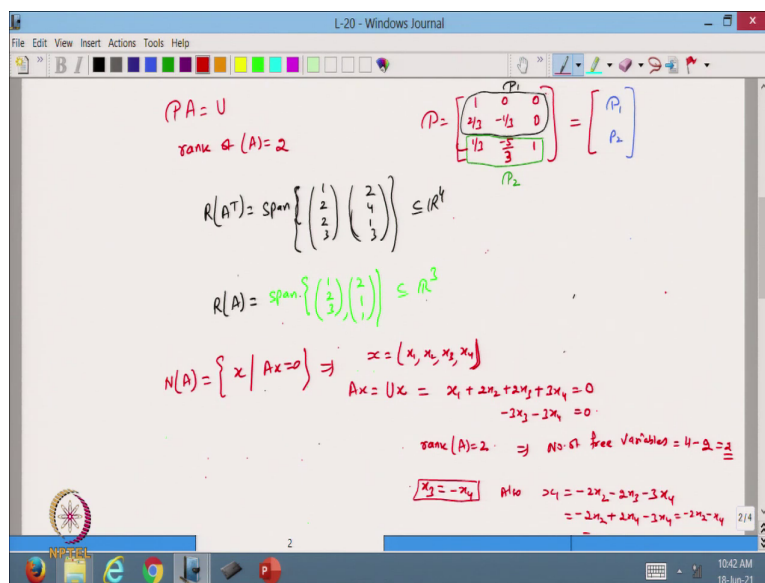 L-20 - Windows Journal
File Edit View Insert Actions Tools Help
B I
PA = U
rank of (A) = 2
P = [ 1 0 0
2/3 -1/3 0
-1/3 -5/3 1 ] = [ P1
P2 ]
P1
P2
R(A^T) = span { (1 2 2 3) (2 4 1 3) } ⊆ R^4
R(A) = span. { (1 2 3), (2 1 1) } ⊆ R^3
N(A) = { x / Ax=0 } ⇒ x = (x1, x2, x3, x4)
Ax = Ux = x1 + 2x2 + 2x3 + 3x4 = 0
-3x3 - 3x4 = 0.
rank(A) = 2 ⇒ No. of free variables = 4 - 2 = 2
x3 = -x4 Also x1 = -2x2 - 2x3 - 3x4
= -2x2 + 2x4 - 3x4 = -2x2 - x4
2/4
NPTEL
2
10:42 AM
18-Jun-21